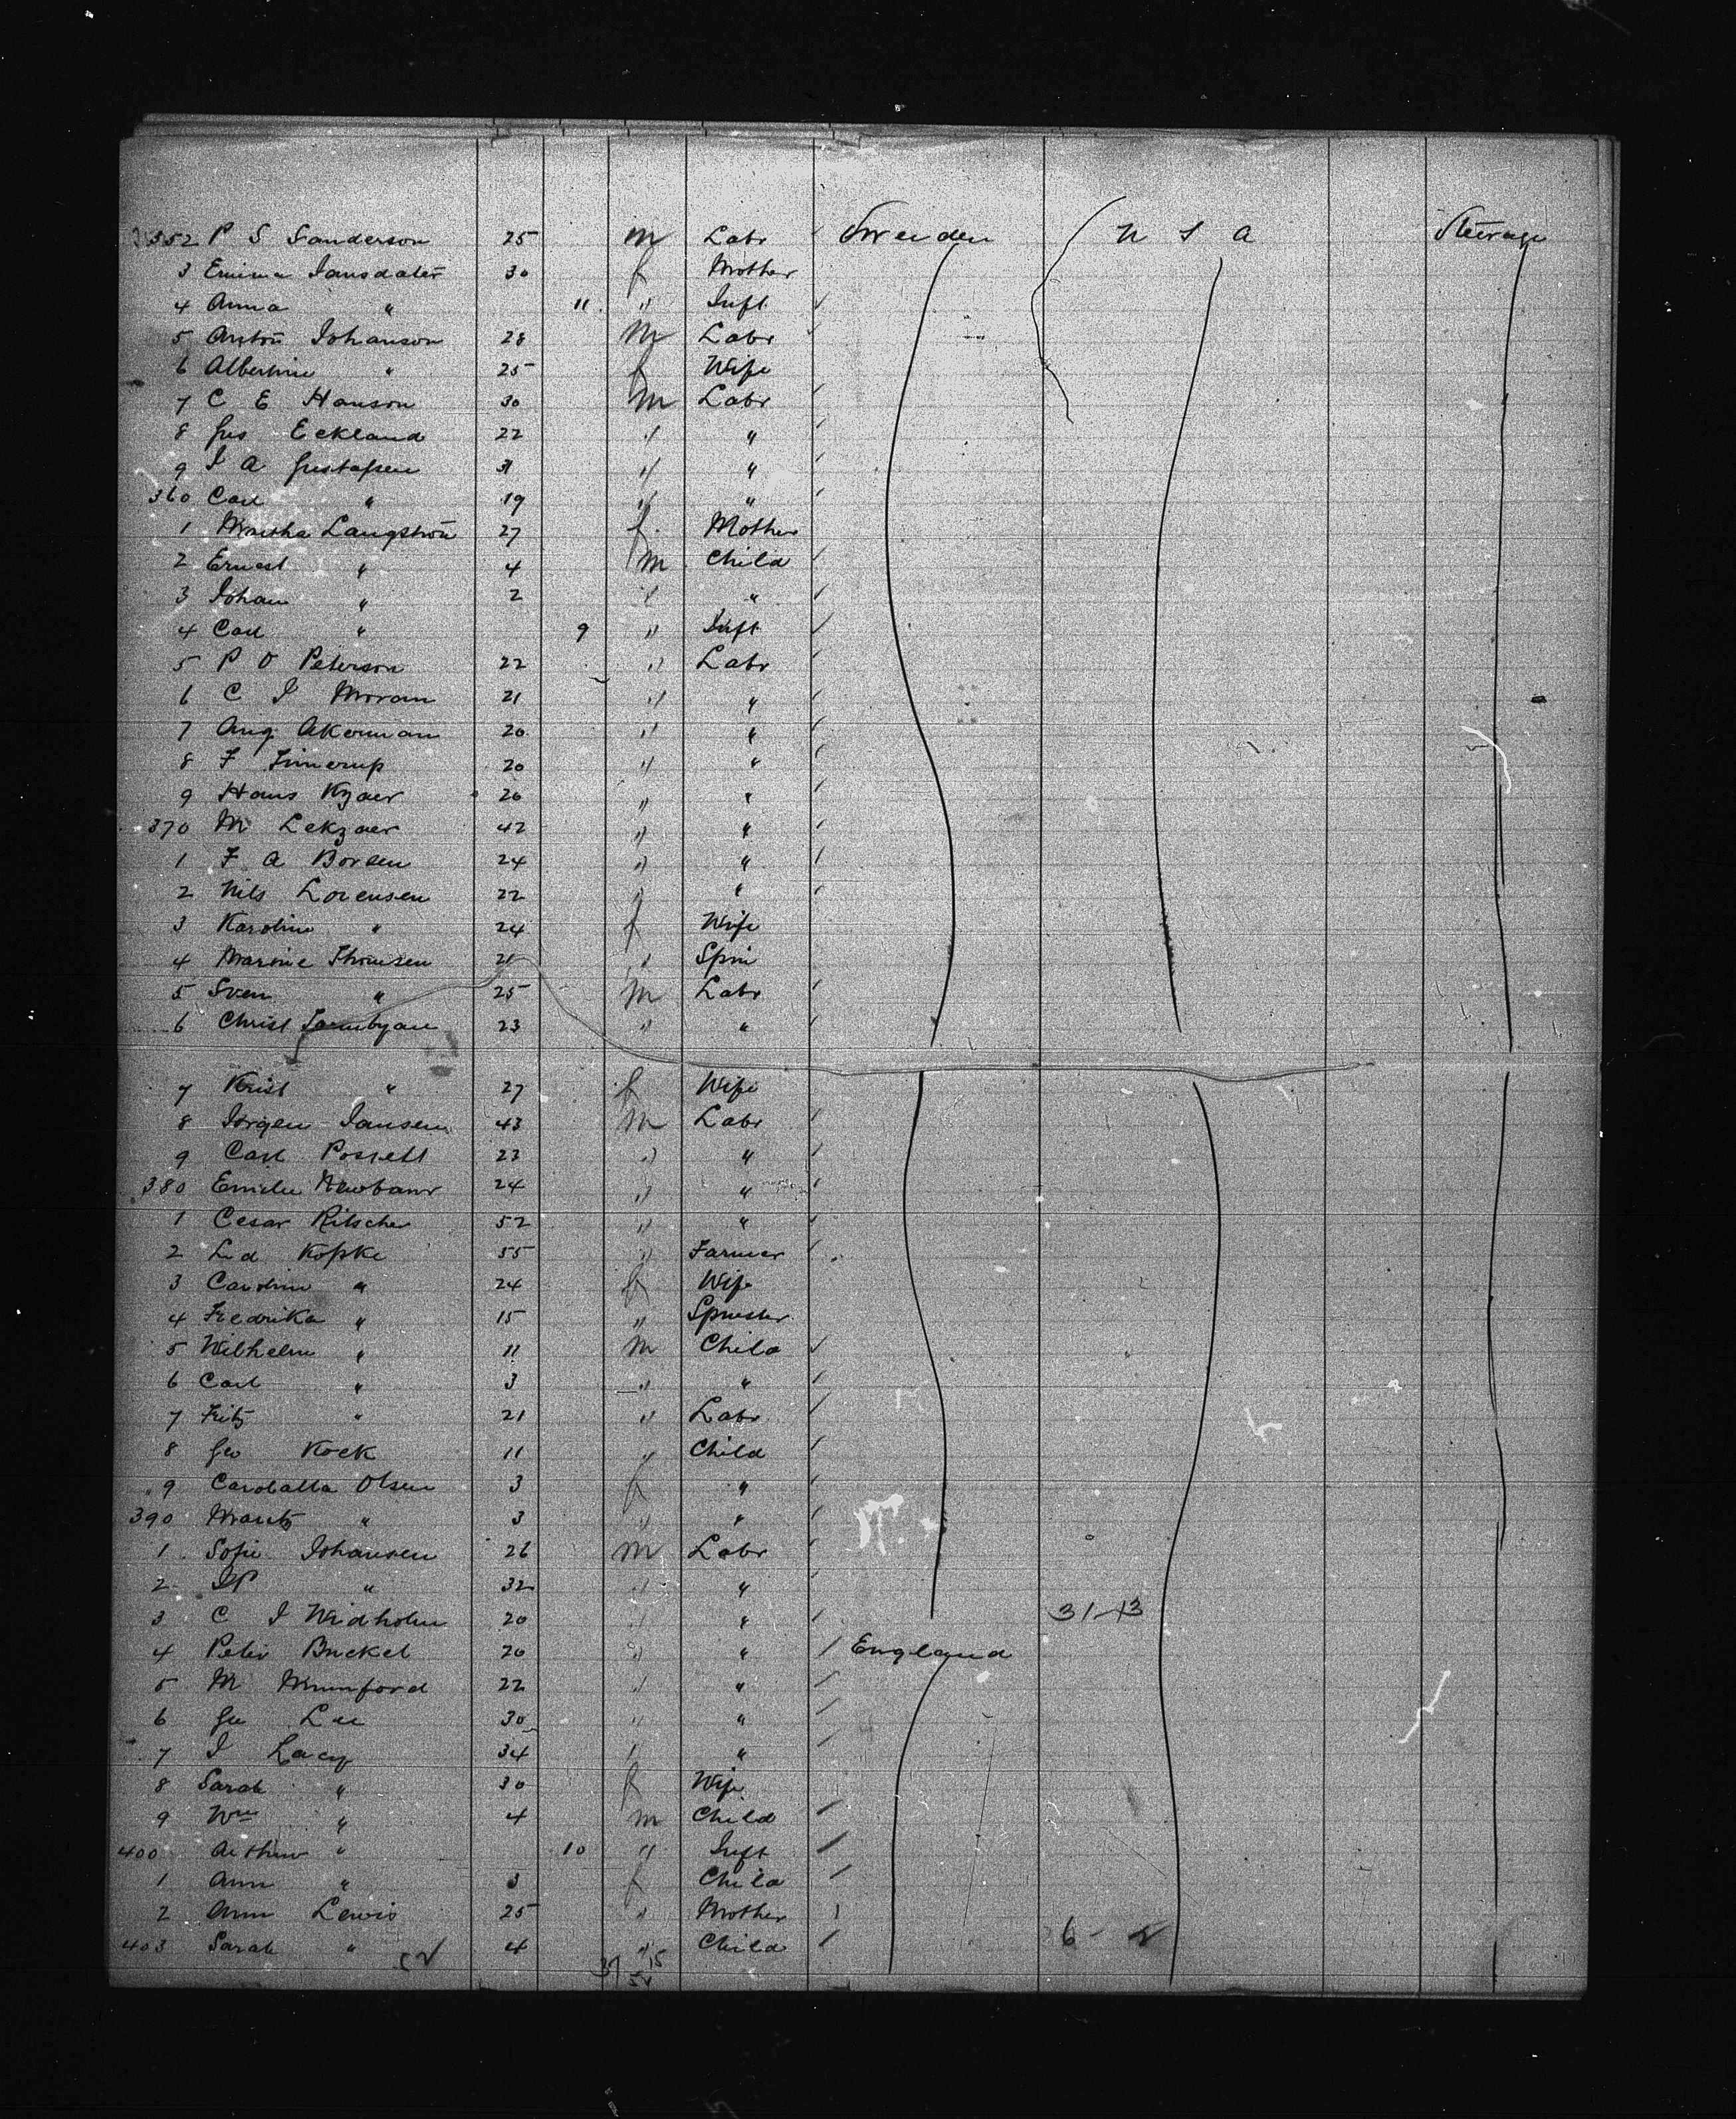 352 P S Sanderson 25 m Labr Sweden U S A Steerage
3 Emima Jansdater 30 f Mother
4 Anna " 11 " Inft
5 Anton Johanson 28 m Labr
6 Albertine " 25 f Wife
7 C E Hanson 30 m Labr
8 Gus Eckland 22 " "
9 J A Gustafsen 31 " "
360 Carl " 19 " "
1 Martha Langstrom 27 f Mother
2 Ernest " 4 m Child
3 Johan " 2 " "
4 Carl " 9 " Inft
5 P O Peterson 22 " Labr
6 C J Moram 21 " "
7 Aug Akerman 20 " "
8 F Finerup 20 " "
9 Hans Kjaer 26 " "
370 M Lekjaer 42 " "
1 F A Borsen 24 " "
2 Nils Lorensen 22 " "
3 Karoline " 24 f Wife
4 Marine Thomsen 21 " Spin
5 Sven " 25 m Labr
6 Christ 23 " "
7 Krist " 27 f Wife
8 Jorgen Jansen 43 m Labr
9 Carl Posselt 23 " "
380 Emilie Newbanr 24 " "
1 Cesar Ritscher 52 " "
2 Ld Kopke 55 " Farmer
3 Caroline " 24 f Wife
4 Fredrika " 15 " Spinster
5 Wilhelm " 11 m Child
6 Carl " 3 " "
7 Fritz " 21 " Labr
8 Geo Kock 11 " Child
9 Olsen 3 f "
390 Maritz " 3 " "
1 Sofie Johansen 26 m Labr
2 " 32 " "
3 C J Widholm 20 " " 31-13
4 Peter Buckel 20 " " England
5 M Mumford 22 " "
6 Geo Lee 30 " "
7 J Lacy 34 " "
8 Sarah " 30 f Wife
9 Wm " 4 m Child
400 Arthur " 10 " Inft
1 Ann " 3 f Child
2 Ann Lewis 25 " Mother
403 Sarah " 4 " Child 6-